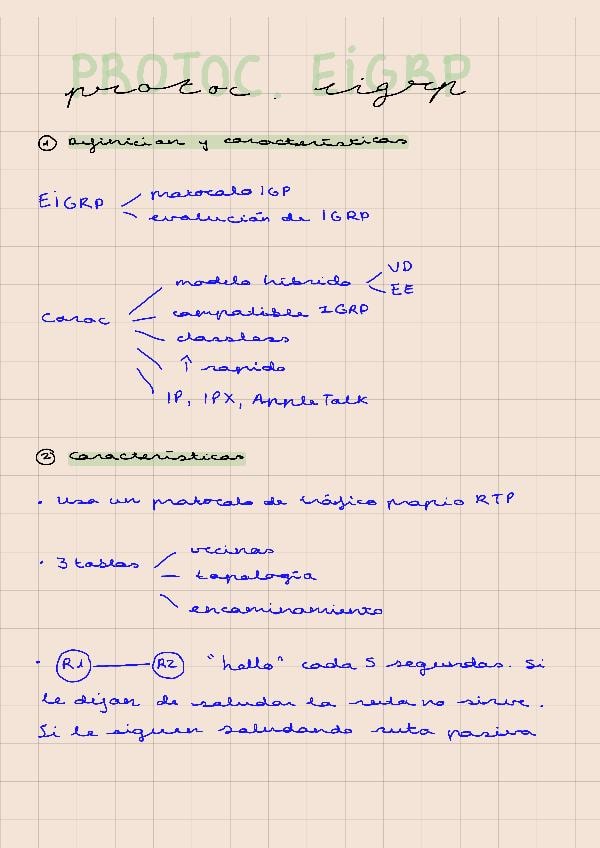 PROTOC. EiGRP
protoc. eigrp
① Definicion y características
EiGRP
protocolo IGP
evolución de IGRP
Carac
modelo híbrido
VD
EE
compatible IGRP
classless
↑ rapido
IP, IPX, AppleTalk
② Características
• Usa un protocolo de tráfico propio RTP
• 3 tablas
vecinas
topología
encaminamiento
• R1 R2 "hello" cada 5 segundos. Si
le dejan de saludar la ruta no sirve.
Si le siguen saludando ruta pasiva